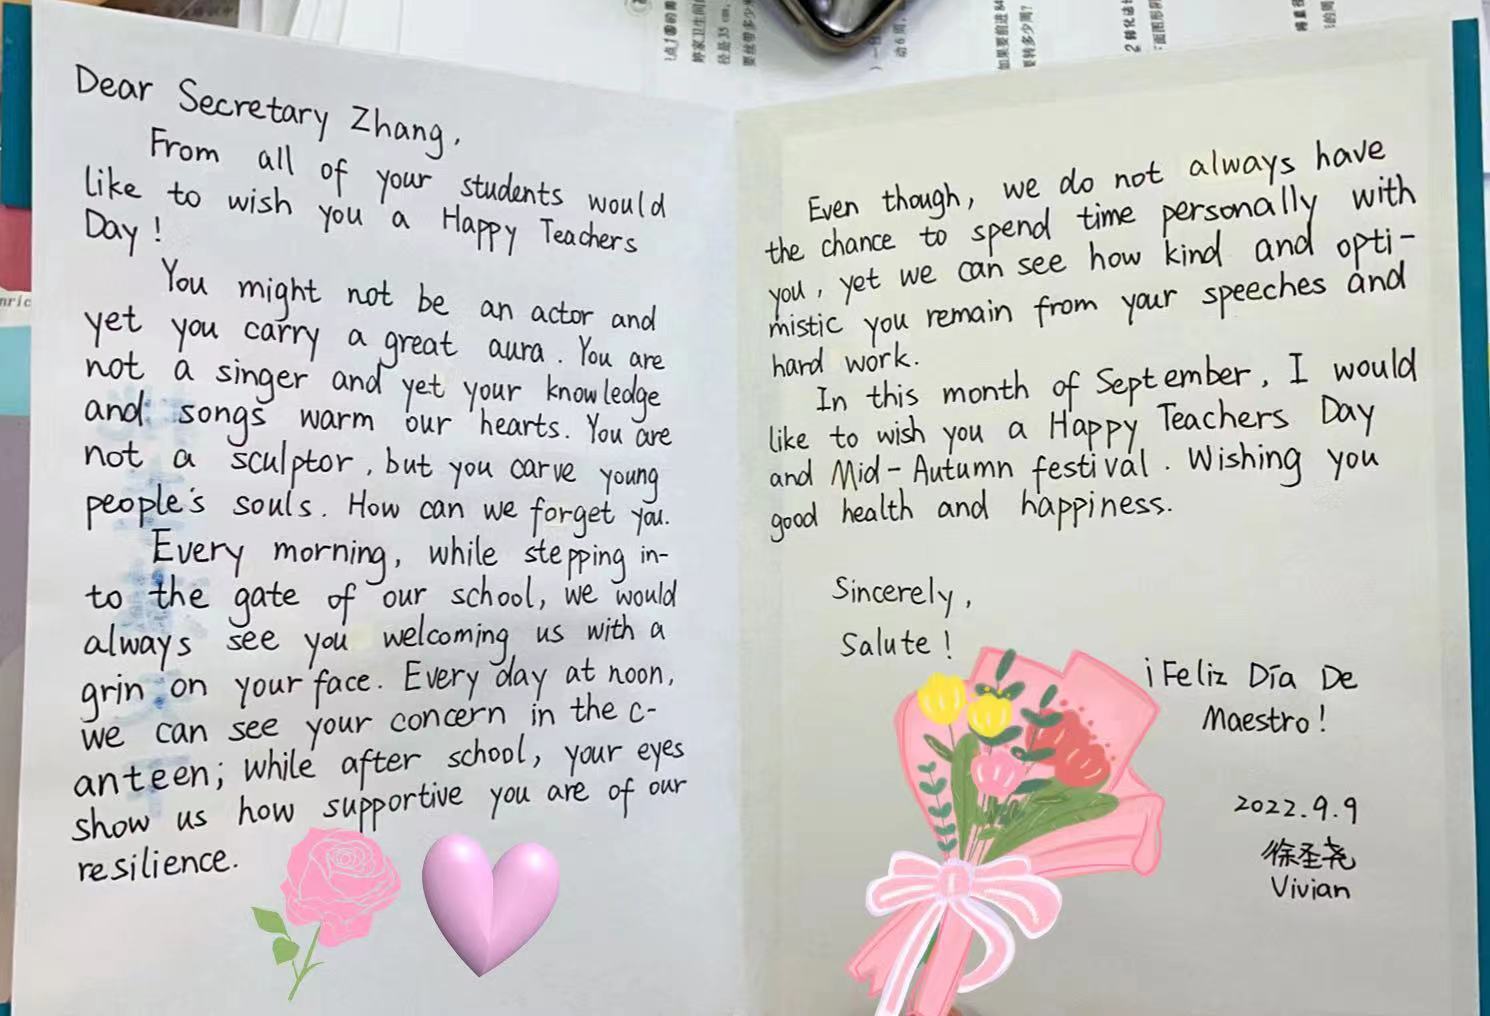 Dear Secretary Zhang,
From all of your students would
like to wish you a Happy Teachers
Day!
You might not be an actor and
yet you carry a great aura. You are
not a singer and yet your knowledge
and songs warm our hearts. You are
not a sculptor, but you carve young
people's souls. How can we forget you.
Every morning, while stepping in-
to the gate of our school, we would
always see you welcoming us with a
grin on your face. Every day at noon,
we can see your concern in the c-
anteen; while after school, your eyes
show us how supportive you are of our
resilience.
Even though, we do not always have
the chance to spend time personally with
you, yet we can see how kind and opti-
mistic you remain from your speeches and
hard work.
In this month of September, I would
like to wish you a Happy Teachers Day
and Mid-Autumn festival. Wishing you
good health and happiness.
Sincerely,
Salute!
¡Feliz Día De
Maestro!
2022.9.9
徐圣尧
Vivian